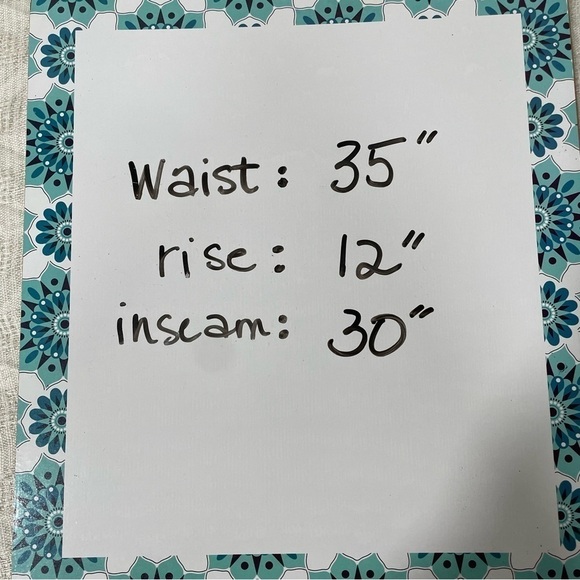 Waist: 35"
rise: 12"
inseam: 30"